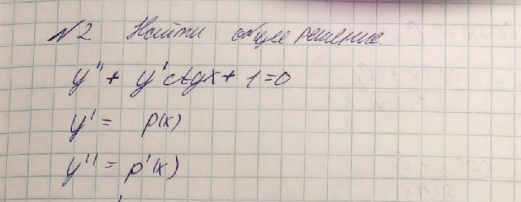 №2 Найти общее решение.
y'' + y' ctgx + 1 = 0
y' = p(x)
y'' = p'(x)